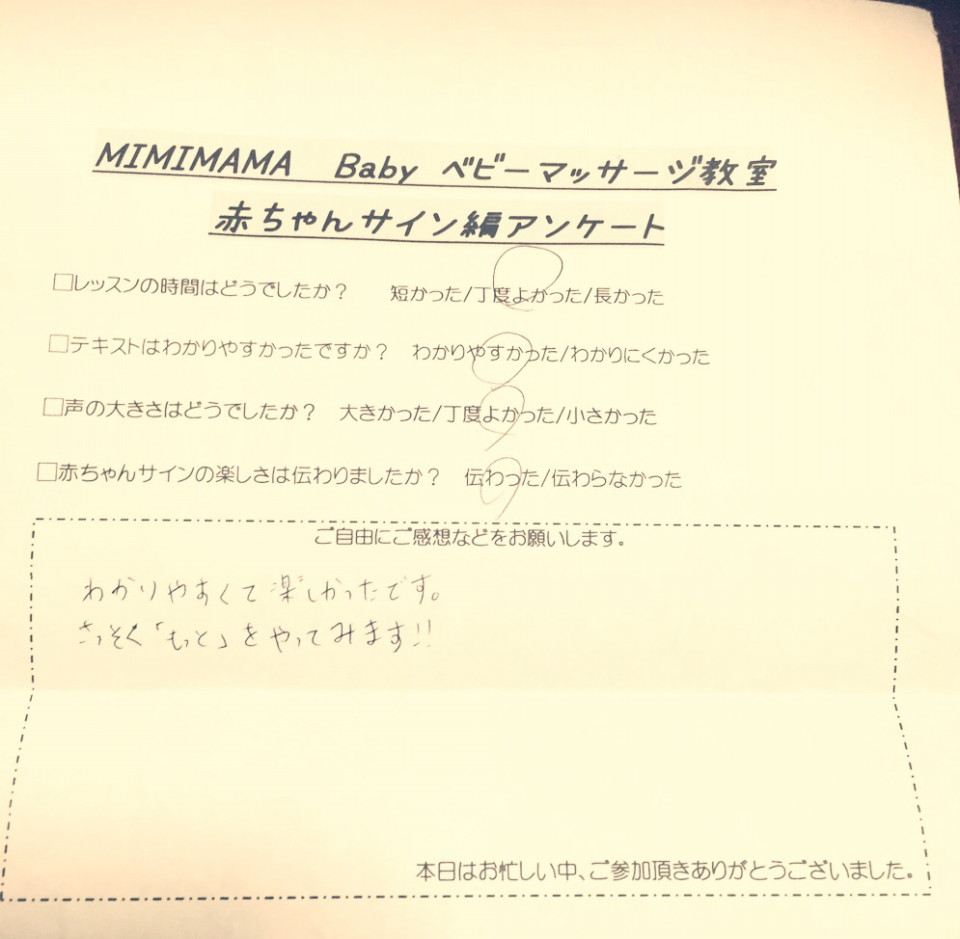 MIMIMAMA Baby ベビーマッサージ教室
赤ちゃんサイン編アンケート
□レッスンの時間はどうでしたか？ 短かった/丁度よかった/長かった
□テキストはわかりやすかったですか？ わかりやすかった/わかりにくかった
□声の大きさはどうでしたか？ 大きかった/丁度よかった/小さかった
□赤ちゃんサインの楽しさは伝わりましたか？ 伝わった/伝わらなかった
ご自由にご感想などをお願いします。
わかりやすくて楽しかったです。
さっそく「もっと」をやってみます!!
本日はお忙しい中、ご参加頂きありがとうございました。